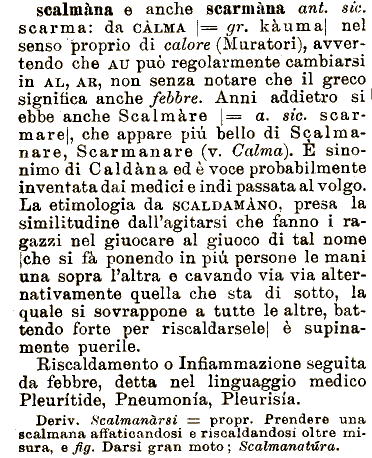 scalmàna e anche scarmàna ant. sic.
scarma: da CÀLMA |= gr. kàuma| nel
senso proprio di calore (Muratori), avver-
tendo che AU può regolarmente cambiarsi
in AL, AR, non senza notare che il greco
significa anche febbre. Anni addietro si
ebbe anche Scalmàre |= a. sic. scar-
mare|, che appare più bello di Scalma-
nare, Scarmanare (v. Calma). È sino-
nimo di Caldàna ed è voce probabilmente
inventata dai medici e indi passata al volgo.
La etimologia da SCALDAMÀNO, presa la
similitudine dall'agitarsi che fanno i ra-
gazzi nel giuocare al giuoco di tal nome
|che si fà ponendo in più persone le mani
una sopra l'altra e cavando via via alter-
nativamente quella che sta di sotto, la
quale si sovrappone a tutte le altre, bat-
tendo forte per riscaldarsele| è supina-
mente puerile.
Riscaldamento o Infiammazione seguita
da febbre, detta nel linguaggio medico
Pleurítide, Pneumonía, Pleurisía.
Deriv. Scalmanàrsi = propr. Prendere una
scalmana affaticandosi e riscaldandosi oltre mi-
sura, e fig. Darsi gran moto; Scalmanatúra.